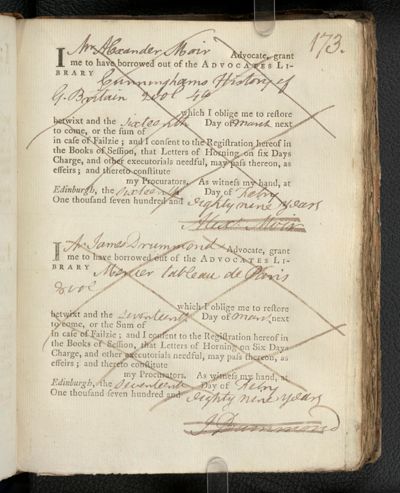 173.
I Mr Alexander Moir Advocate, grant
me to have borrowed out of the ADVOCATES LI-
BRARY Cunninghams History of
G. Britain 2 vol 4o
which I oblige me to restore
betwixt and the sixteenth Day of March next
to come, or the sum of
in case of Failzie; and I consent to the Registration hereof in
the Books of Session, that Letters of Horning on six Days
Charge, and other executorials needful, may pass thereon, as
effeirs; and thereto constitute
my Procurators. As witness my hand, at
Edinburgh, the sixteenth Day of Febry
One thousand seven hundred and Eighty nine years
Alexr Moir
I Mr James Drummond Advocate, grant
me to have borrowed out of the ADVOCATES LI-
BRARY Mercier tableau de Paris
vol
which I oblige me to restore
betwixt and the seventeenth Day of March next
to come, or the Sum of
in case of Failzie; and I consent to the Registration hereof in
the Books of Session, that Letters of Horning on Six Days
Charge, and other executorials needful, may pass thereon, as
effeirs; and thereto constitute
my Procurators. As witness my hand, at
Edinburgh, the seventeenth Day of Febry
One thousand seven hundred and eighty nine years
J Drummond